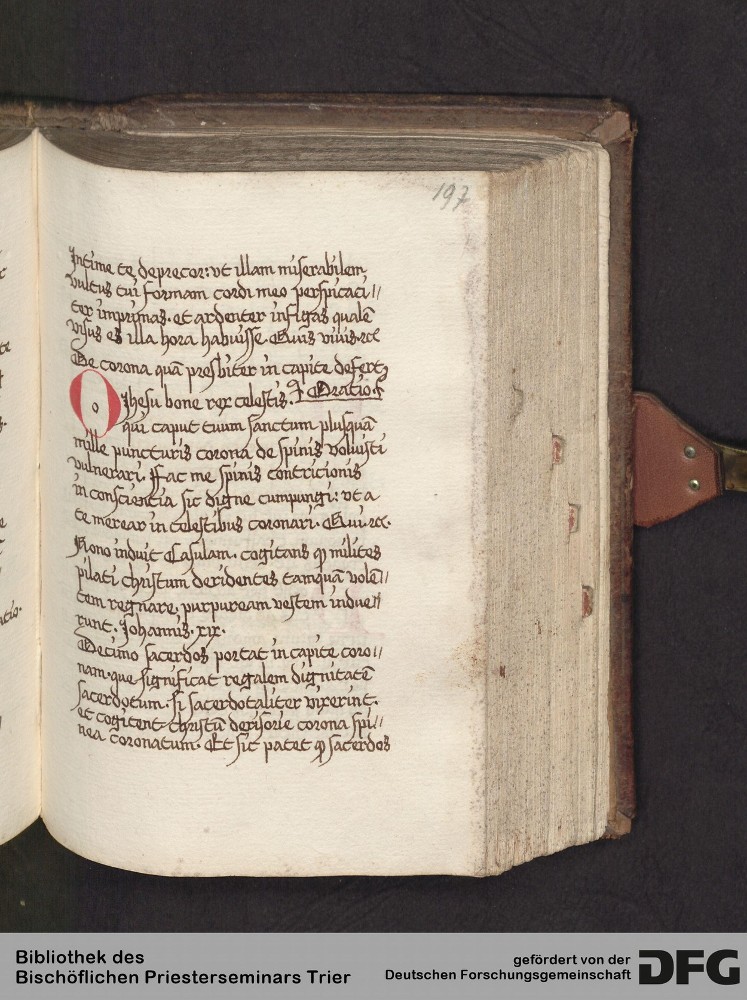 197
Intime te deprecor: vt illam miserabilem
vultus tui formam cordi meo perspicaci//
ter imprimas. et ardenter infigas qualē
visus es illa hora habuisse. Quis viuis. rc
De corona quā presbiter in capite defert
O Jhesu bone rex celestis. Oratio.
qui caput tuum sanctum plusquā
mille puncturis corona de spinis voluisti
vulnerari. Fac me spinis contricionis
in consciencia sic digne cumpungi: vt a
te merear in celestibus coronari. Qui. rc.
Nono induit Casulam. cogitans ꝙ milites
pilati christum deridentes tamquā volē//
tem regnare. purpuream vestem indue//
runt. Johannis. xix.
Decimo sacerdos portat in capite coro//
nam. que significat regalem dignitatē
sacerdotum. si sacerdotaliter vixerint.
et cogitent christū derisorie corona spi//
nea coronatum. Et sic patet ꝙ sacerdos
Bibliothek des
Bischöflichen Priesterseminars Trier
gefördert von der
Deutschen Forschungsgemeinschaft
DFG